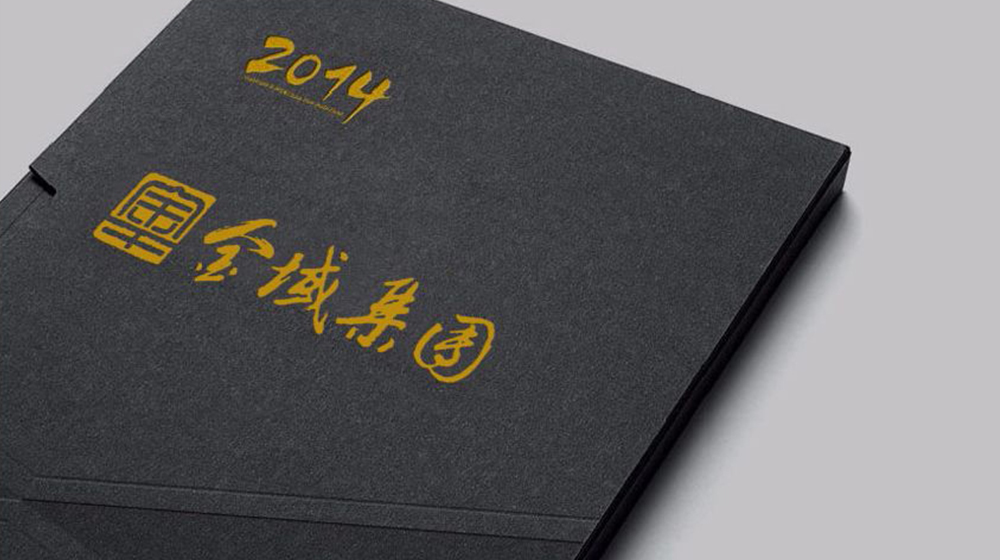 2014
金域集团